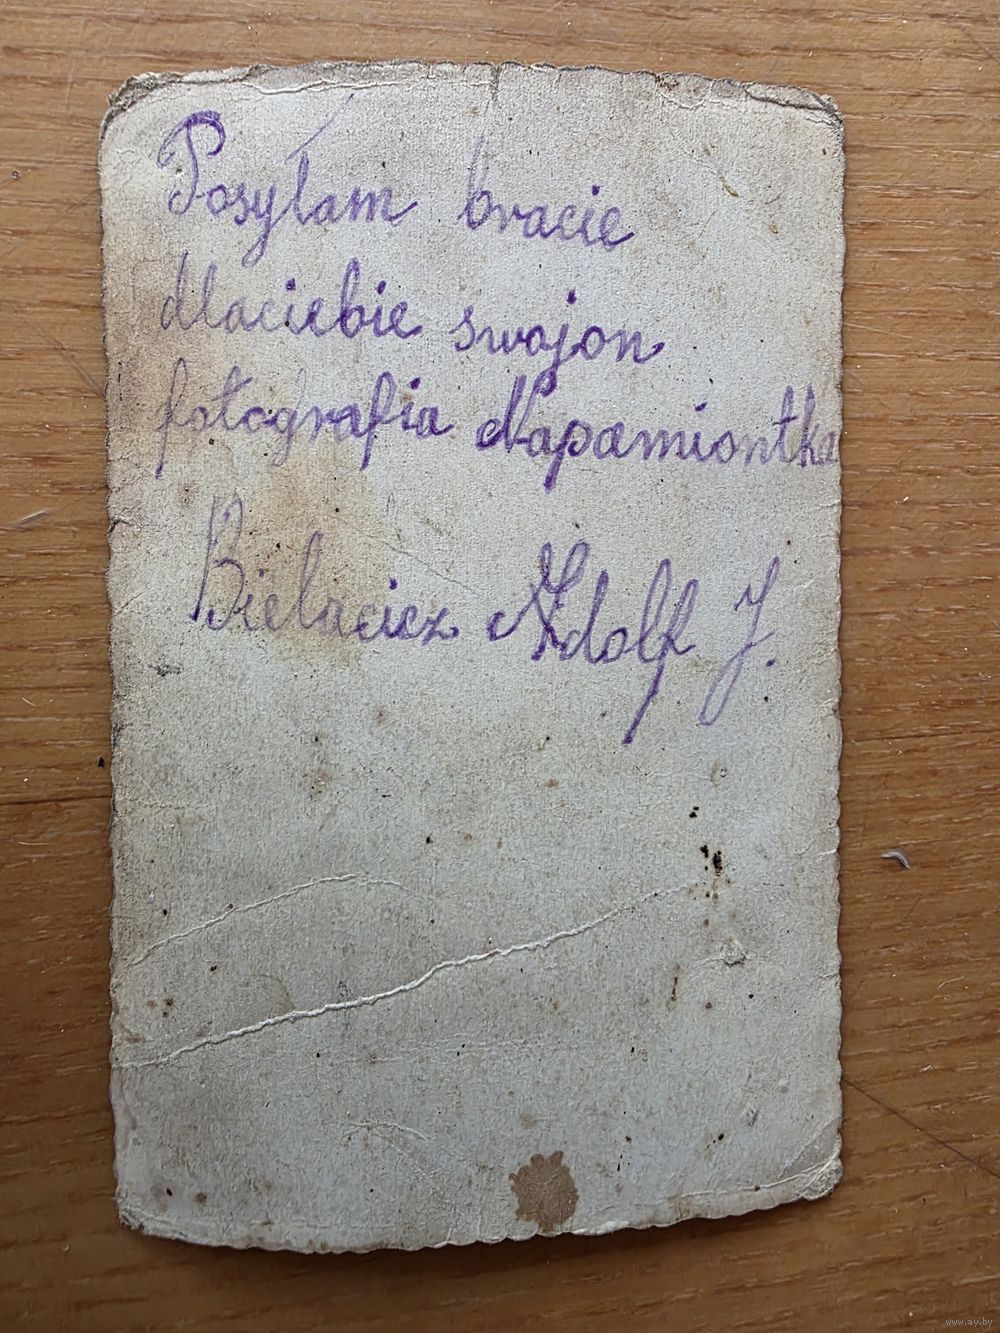 Posyłam bracie
dlaciebie swojon
fotografia Napamiontka
Bielacicz Adolf J.
www.ay.by